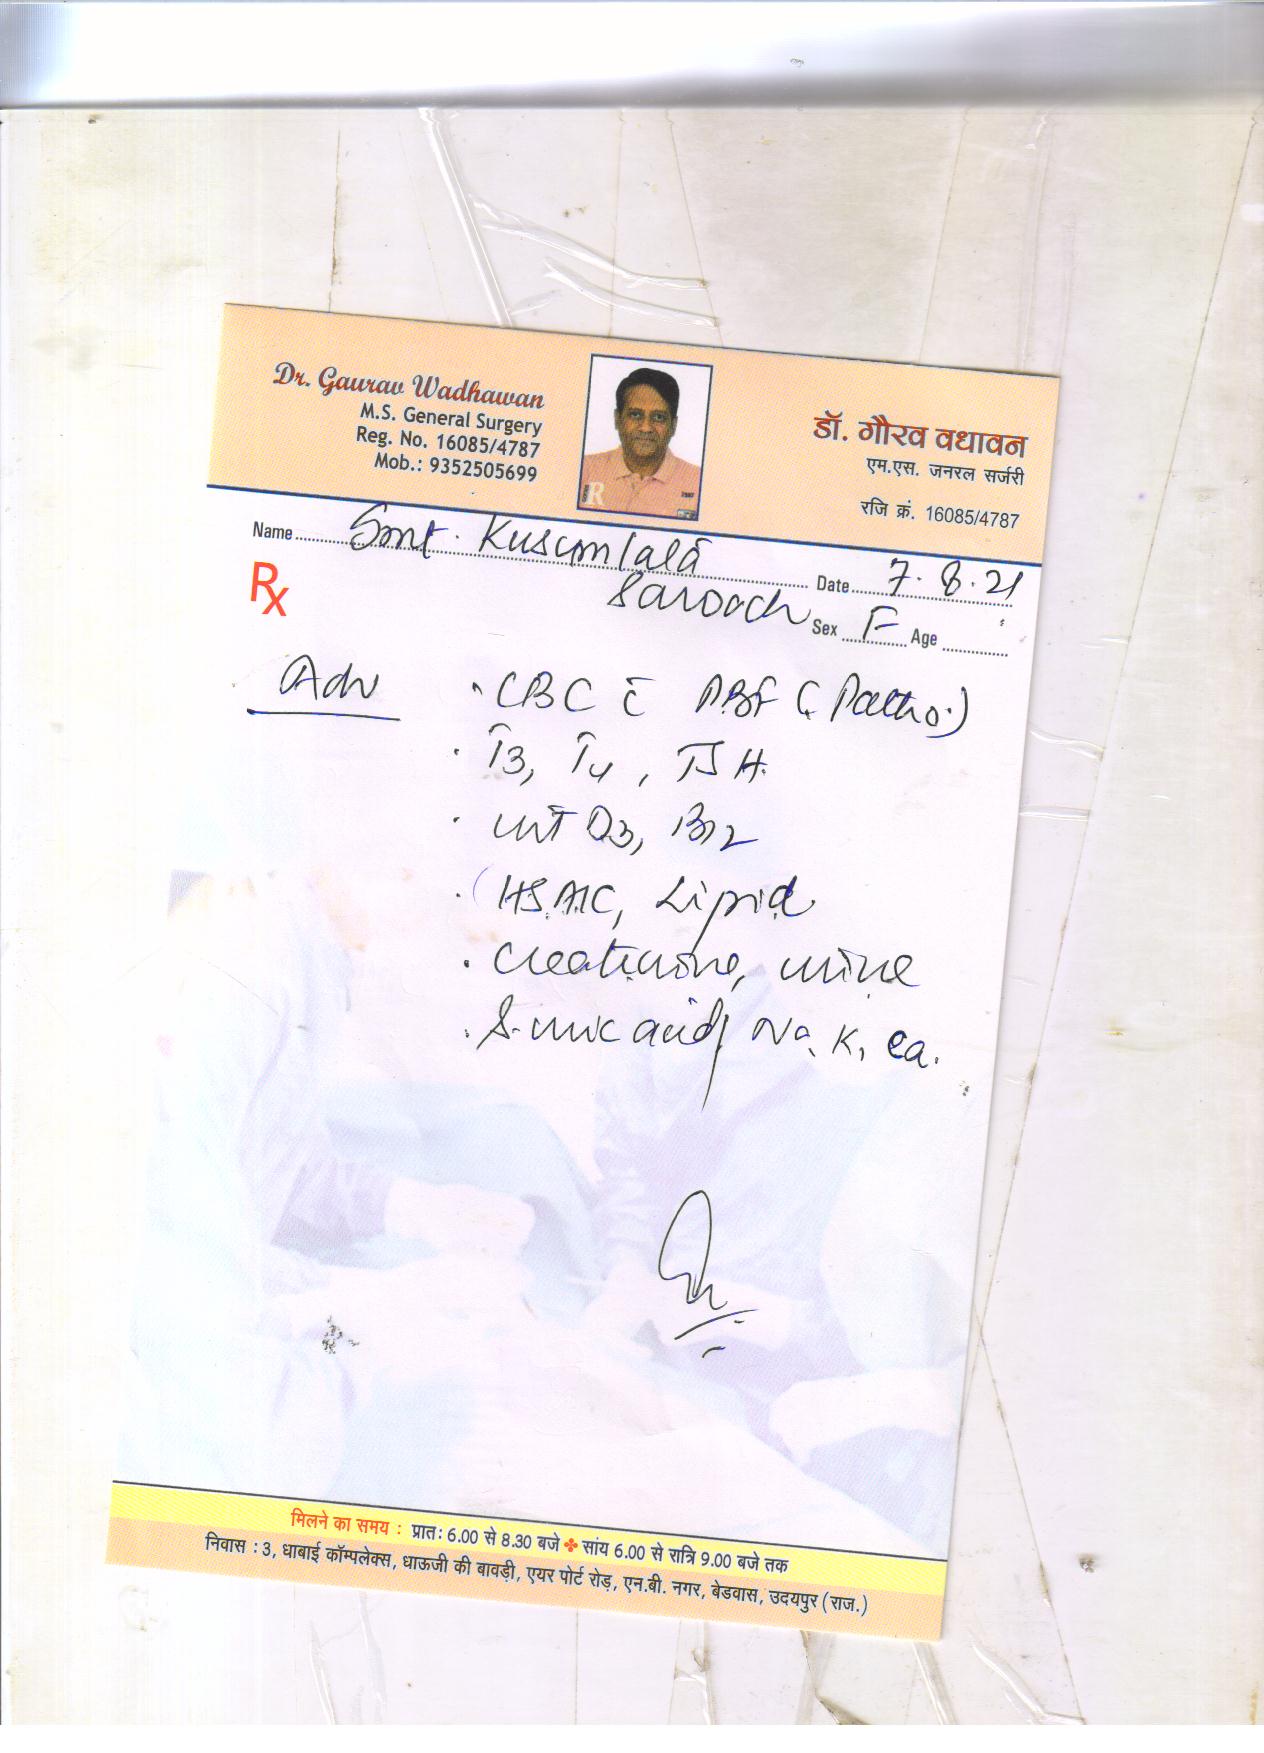 Dr. Gaurav Wadhawan
M.S. General Surgery
Reg. No. 16085/4787
Mob.: 9352505699
डॉ. गौरव वधावन
एम.एस. जनरल सर्जरी
रजि क्रं. 16085/4787
Name Smt. Kusumlata
Date 7.8.21
Sarooch
Sex F Age
Rx
Adv
. CBC c̄ PBF (Patho.)
. T3, T4, TSH.
. Vit D3, B12
. HbA1C, Lipid
. Creatinine, urine
. S. uric acid, Na, K, Ca.
मिलने का समय : प्रात: 6.00 से 8.30 बजे ❖ सांय 6.00 से रात्रि 9.00 बजे तक
निवास : 3, धाबाई कॉम्पलेक्स, धाऊजी की बावड़ी, एयर पोर्ट रोड़, एन.बी. नगर, बेडवास, उदयपुर (राज.)